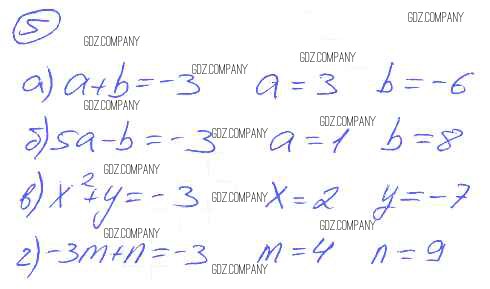 5
GDZ.COMPANY
GDZ.COMPANY
GDZ.COMPANY
GDZ.COMPANY
а) a+b=-3 a=3 b=-6
GDZ.COMPANY
GDZ.COMPANY
GDZ.COMPANY
б) 5a-b=-3 a=1 b=8
GDZ.COMPANY
GDZ.COMPANY
в) x²+y=-3 x=2 y=-7
GDZ.COMPANY
GDZ.COMPANY
г) -3m+n=-3 m=4 n=9
GDZ.COMPANY